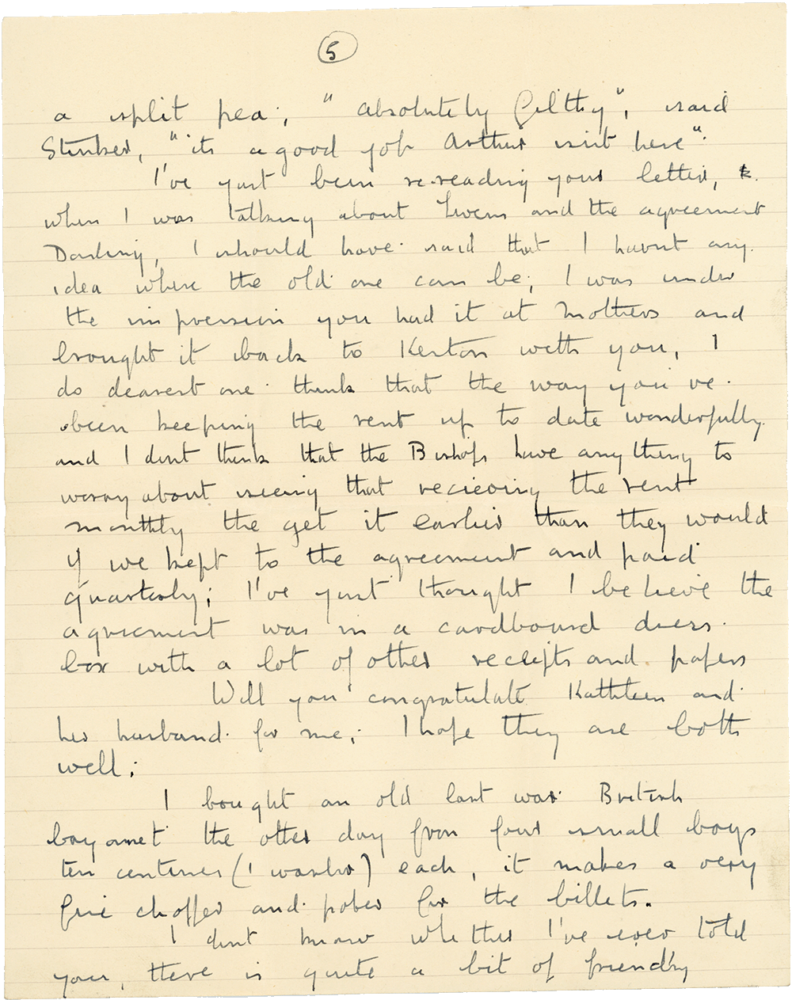 5
a split pea; " absolutely filthy", said
Stinker, "its a good job Arthur isnt here".
I've just been re-reading your letter,
when I was talking about and the agreement
Darling, I should have said that I havnt any
idea where the old one can be; I was under
the impression you had it at Mothers and
brought it back to Kenton with you, I
do dearest one think that the way you've
been keeping the rent up to date wonderfully
and I dont think that the Bishops have anything to
worry about seeing that recieving the rent
monthly the get it earlier than they would
if we kept to the agreement and paid
quarterly; I've just thought I believe the
agreement was in a cardboard dress
box with a lot of other receipts and papers
Will you congratulate Kathleen and
her husband for me; I hope they are both
well;
I bought an old last war British
bayonet the other day from four small boys
ten centimes (1 washer) each, it makes a very
fine chopper and poker for the billets.
I dont know whether I've ever told
you, there is quite a bit of friendly